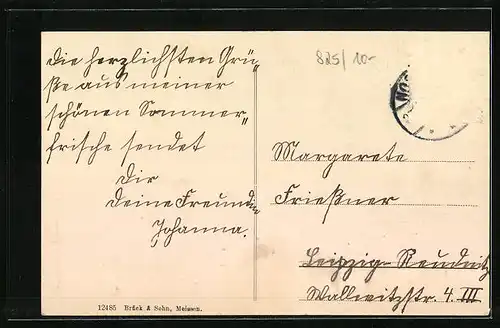 Die herzlichsten Grü„
ße aus meiner
schönen Sommer„
frische sendet
Dir
Deine Freundin
Johanna.
825/10-
Margarete
Frießner
Leipzig-Reudnitz
Wallwitzstr. 4. III
12485 Brück & Sohn, Meissen.